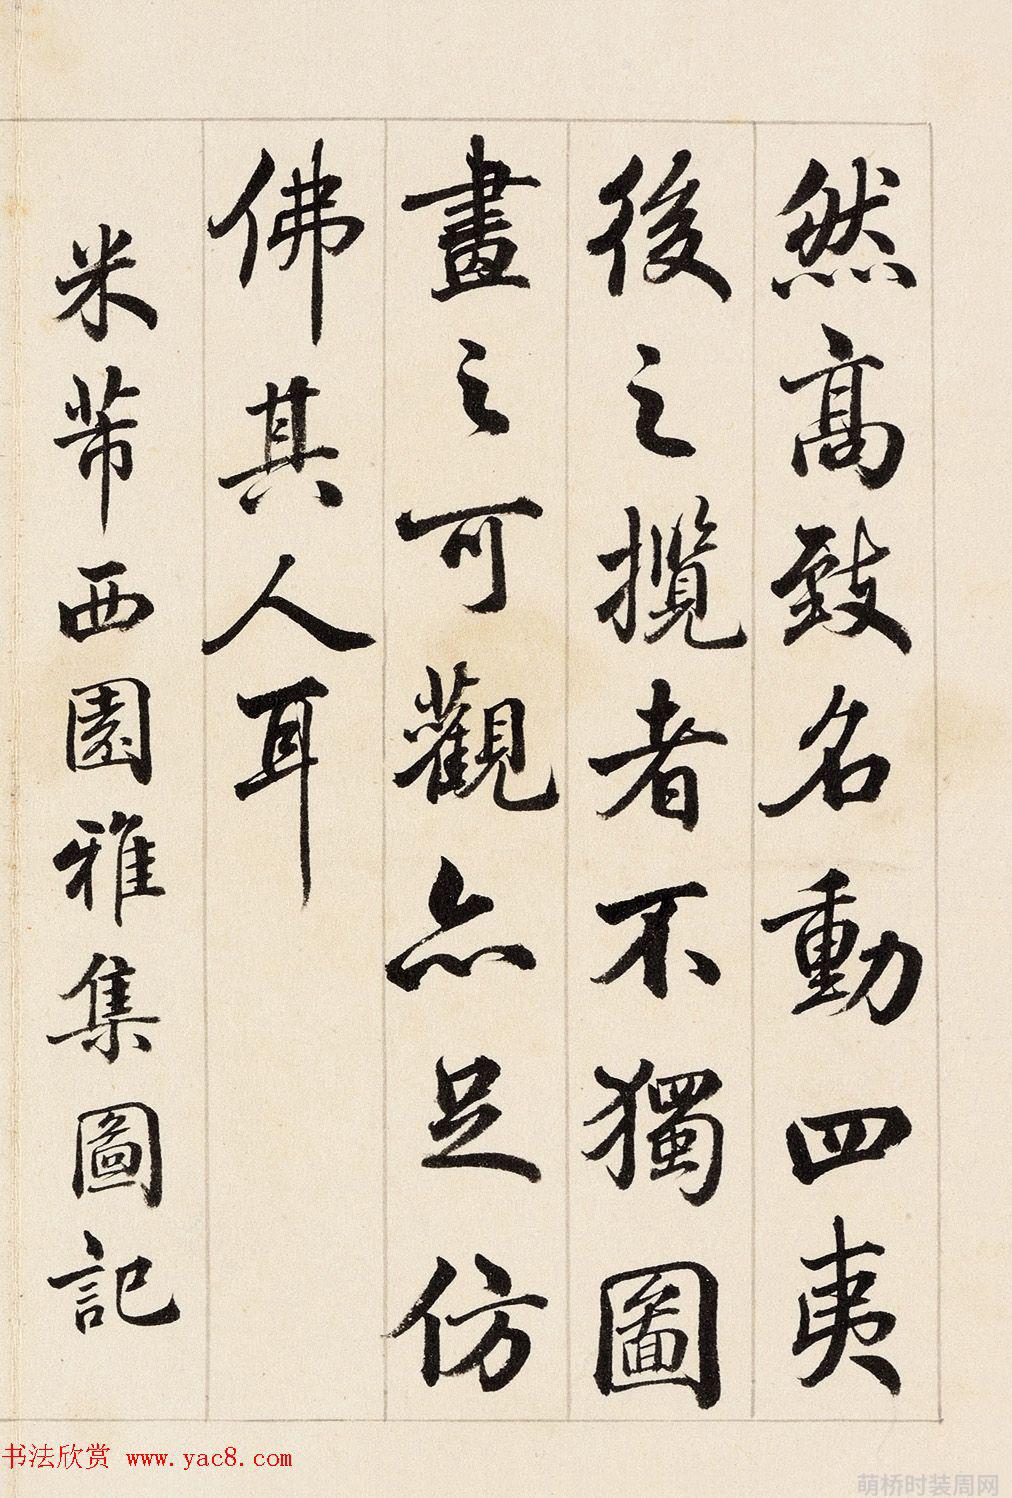 然高致名動四夷
後之攬者不獨圖
畫之可觀亦足仿
佛其人耳
米芾西園雅集圖記
书法欣赏 www.yac8.com
萌桥时装周网